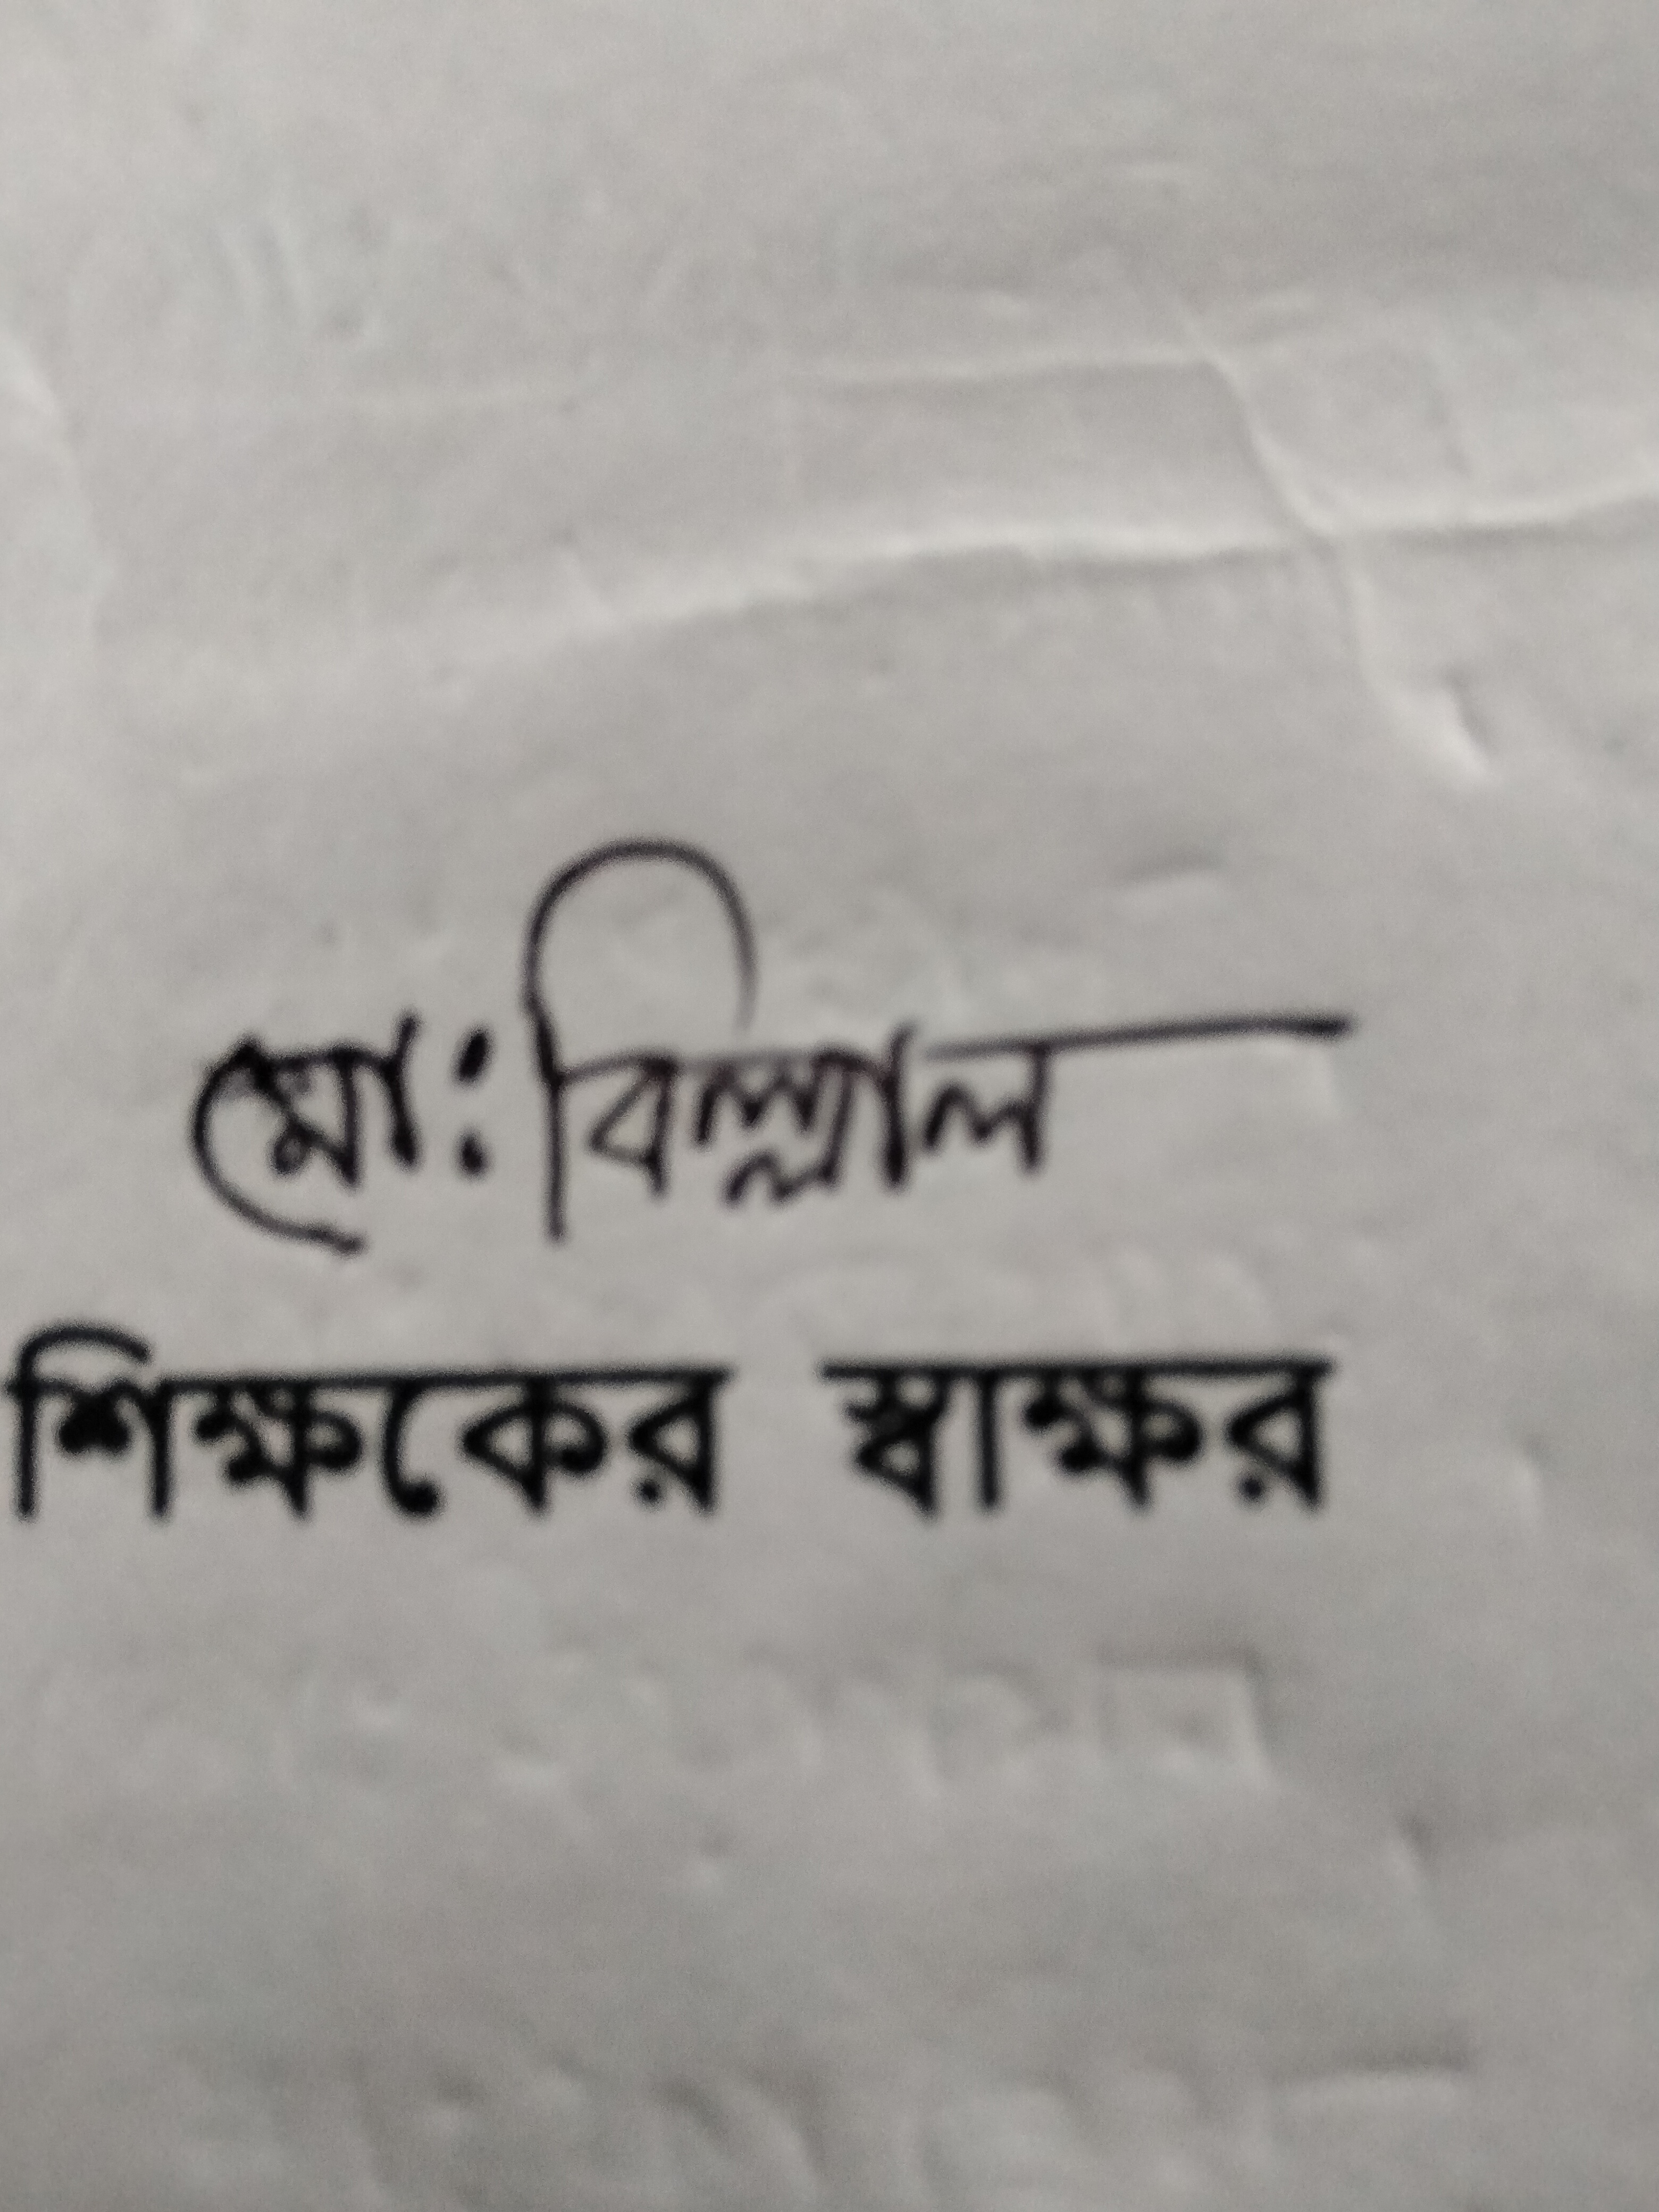 মো: বিল্লাল
শিক্ষকের স্বাক্ষর